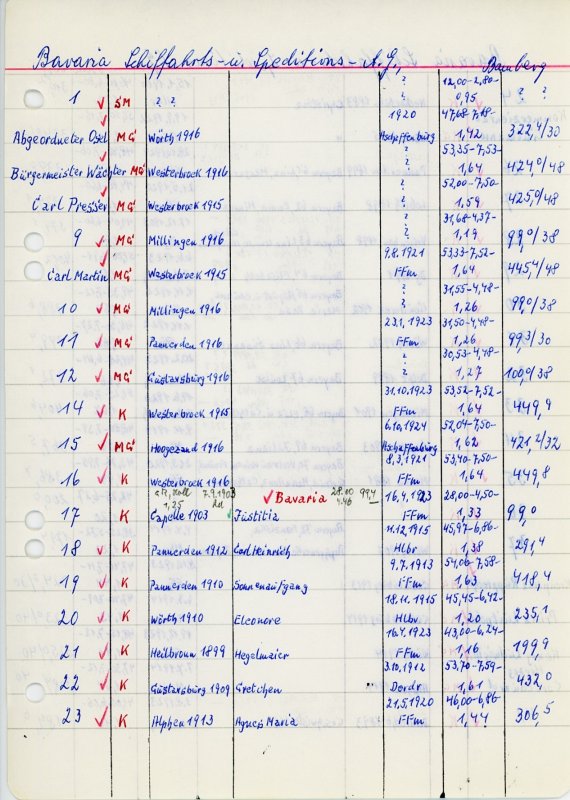 Bavaria Schiffahrts- u. Speditions-A.G., Bamberg
? 12,00-2,80-
1 SM ? ? 0,95 ? ?
1920 47,68-7,18-
Abgeordneter Osel MG Wörth 1916 Aschaffenburg 1,42 322,4/30
? 53,35-7,53-
Bürgermeister Wächter MG Westerbrock 1916 ? 1,64 424,0/48
? 52,00-7,50-
Carl Presser MG Westerbrock 1915 ? 1,59 425,0/48
? 31,68-4,37-
9 MG Millingen 1916 ? 1,19 99,0/38
9.8.1921 53,33-7,52-
Carl Martin MG Westerbrock 1915 FFm 1,64 445,4/48
? 31,55-4,48-
10 MG Millingen 1916 ? 1,26 99,0/38
23.1.1923 31,50-4,48-
11 MG Pannerden 1916 FFm 1,26 99,3/30
? 30,53-4,48-
12 MG Gustavsburg 1916 ? 1,27 100,0/38
31.10.1923 53,52-7,52-
14 K Westerbrock 1915 FFm 1,64 449,9
6.10.1924 52,04-7,50-
15 MG Hoogezand 1916 Aschaffenburg 1,62 421,2/32
8.3.1921 53,40-7,50-
16 K Westerbrock 1916 FFm 1,64 449,8
7.9.1903 Bavaria 28.00 4.46 99,4 16.4.1923 28,00-4,50-
1,25
17 K Capelle 1903 Justitia FFm 1,33 99,0
11.12.1915 45,97-6,86-
18 K Pannerden 1912 Carl Heinrich Hlbr 1,38 291,4
9.7.1913 54,06-7,58-
19 K Pannerden 1910 Sonnenaufgang FFm 1,63 418,4
18.11.1915 45,45-6,42-
20 K Wörth 1910 Eleonore Hlbr 1,20 235,1
16.4.1923 43,00-6,24-
21 K Heilbronn 1899 Hegelmaier FFm 1,16 199,9
3.10.1912 53,70-7,59-
22 K Gustavsburg 1909 Gretchen Dordr 1,61 432,0
21.5.1920 46,00-6,86-
23 K Alphen 1913 Agnes Maria FFm 1,44 306,5